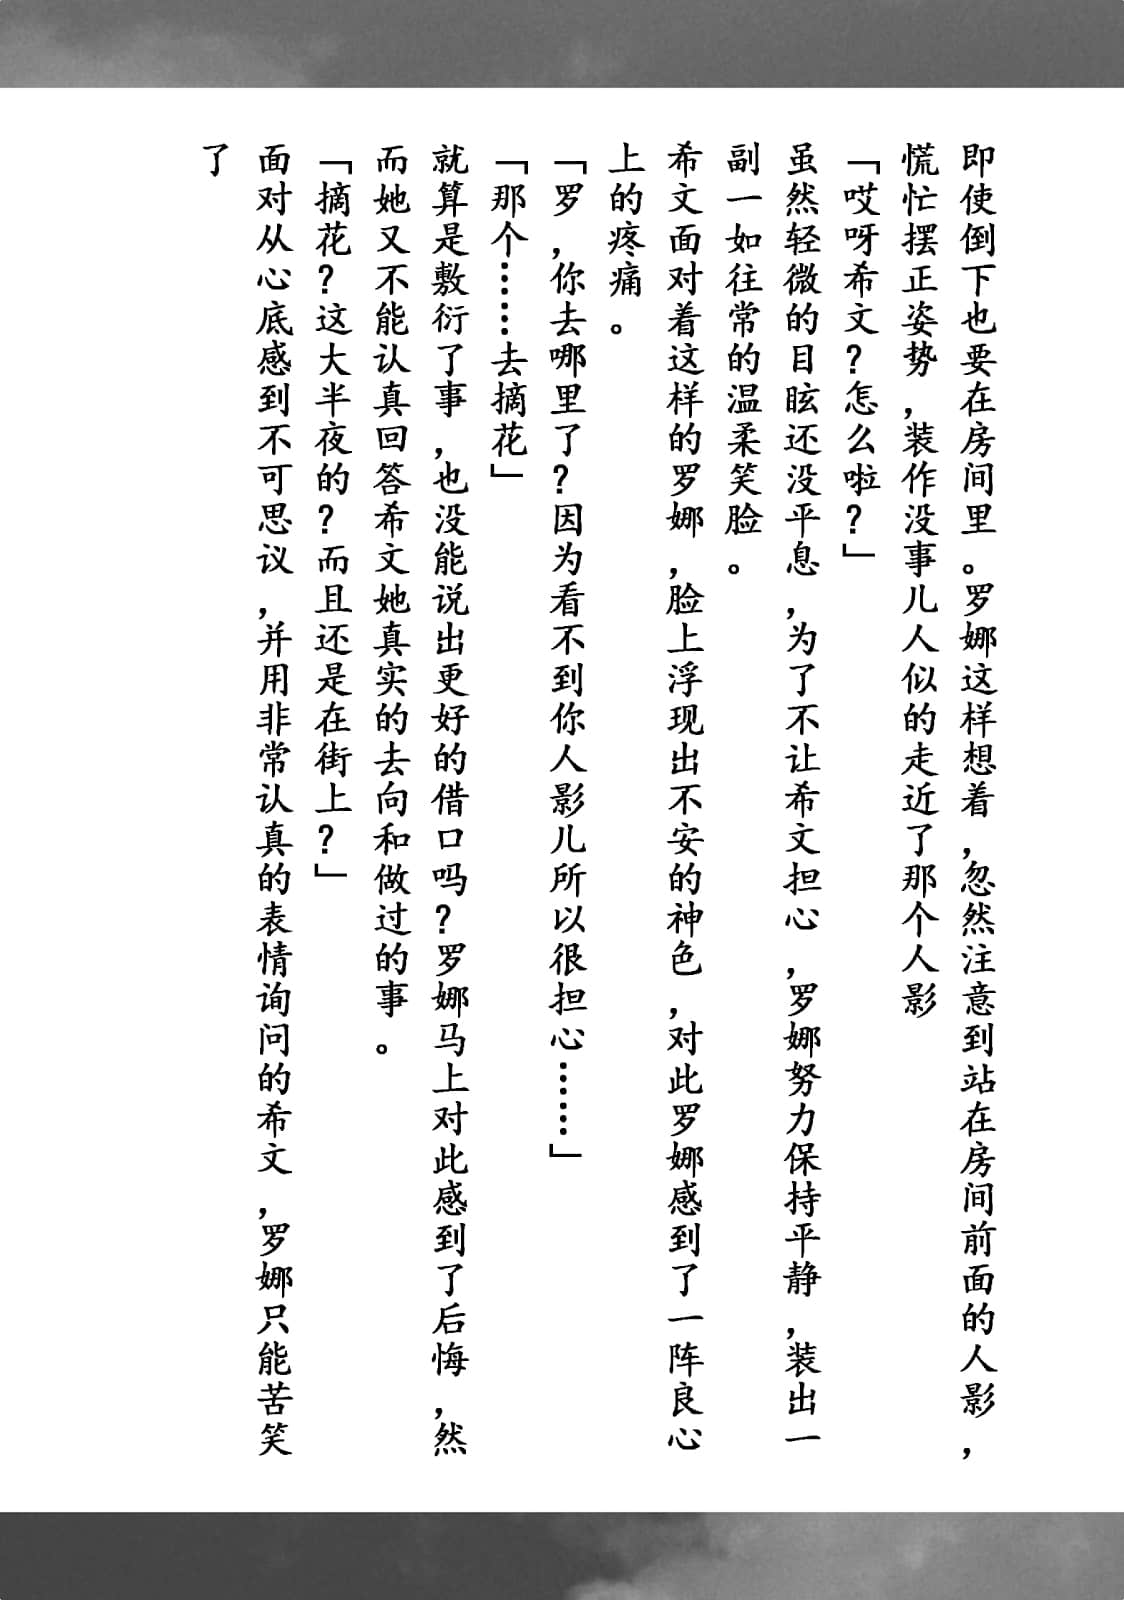 即使倒下也要在房间里。罗娜这样想着,忽然注意到站在房间前面的人影,
慌忙摆正姿势,装作没事儿人似的走近了那个人影
「哎呀希文?怎么啦?」
虽然轻微的目眩还没平息,为了不让希文担心,罗娜努力保持平静,装出一
副一如往常的温柔笑脸。
希文面对着这样的罗娜,脸上浮现出不安的神色,对此罗娜感到了一阵良心
上的疼痛。
「罗,你去哪里了?因为看不到你人影儿所以很担心……」
「那个……去摘花」
就算是敷衍了事,也没能说出更好的借口吗?罗娜马上对此感到了后悔,然
而她又不能认真回答希文她真实的去向和做过的事。
「摘花?这大半夜的?而且还是在街上?」
面对从心底感到不可思议,并用非常认真的表情询问的希文,罗娜只能苦笑
了